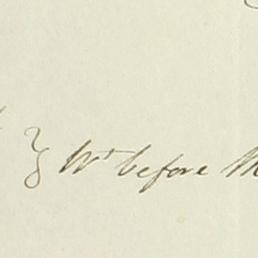 } Wt before